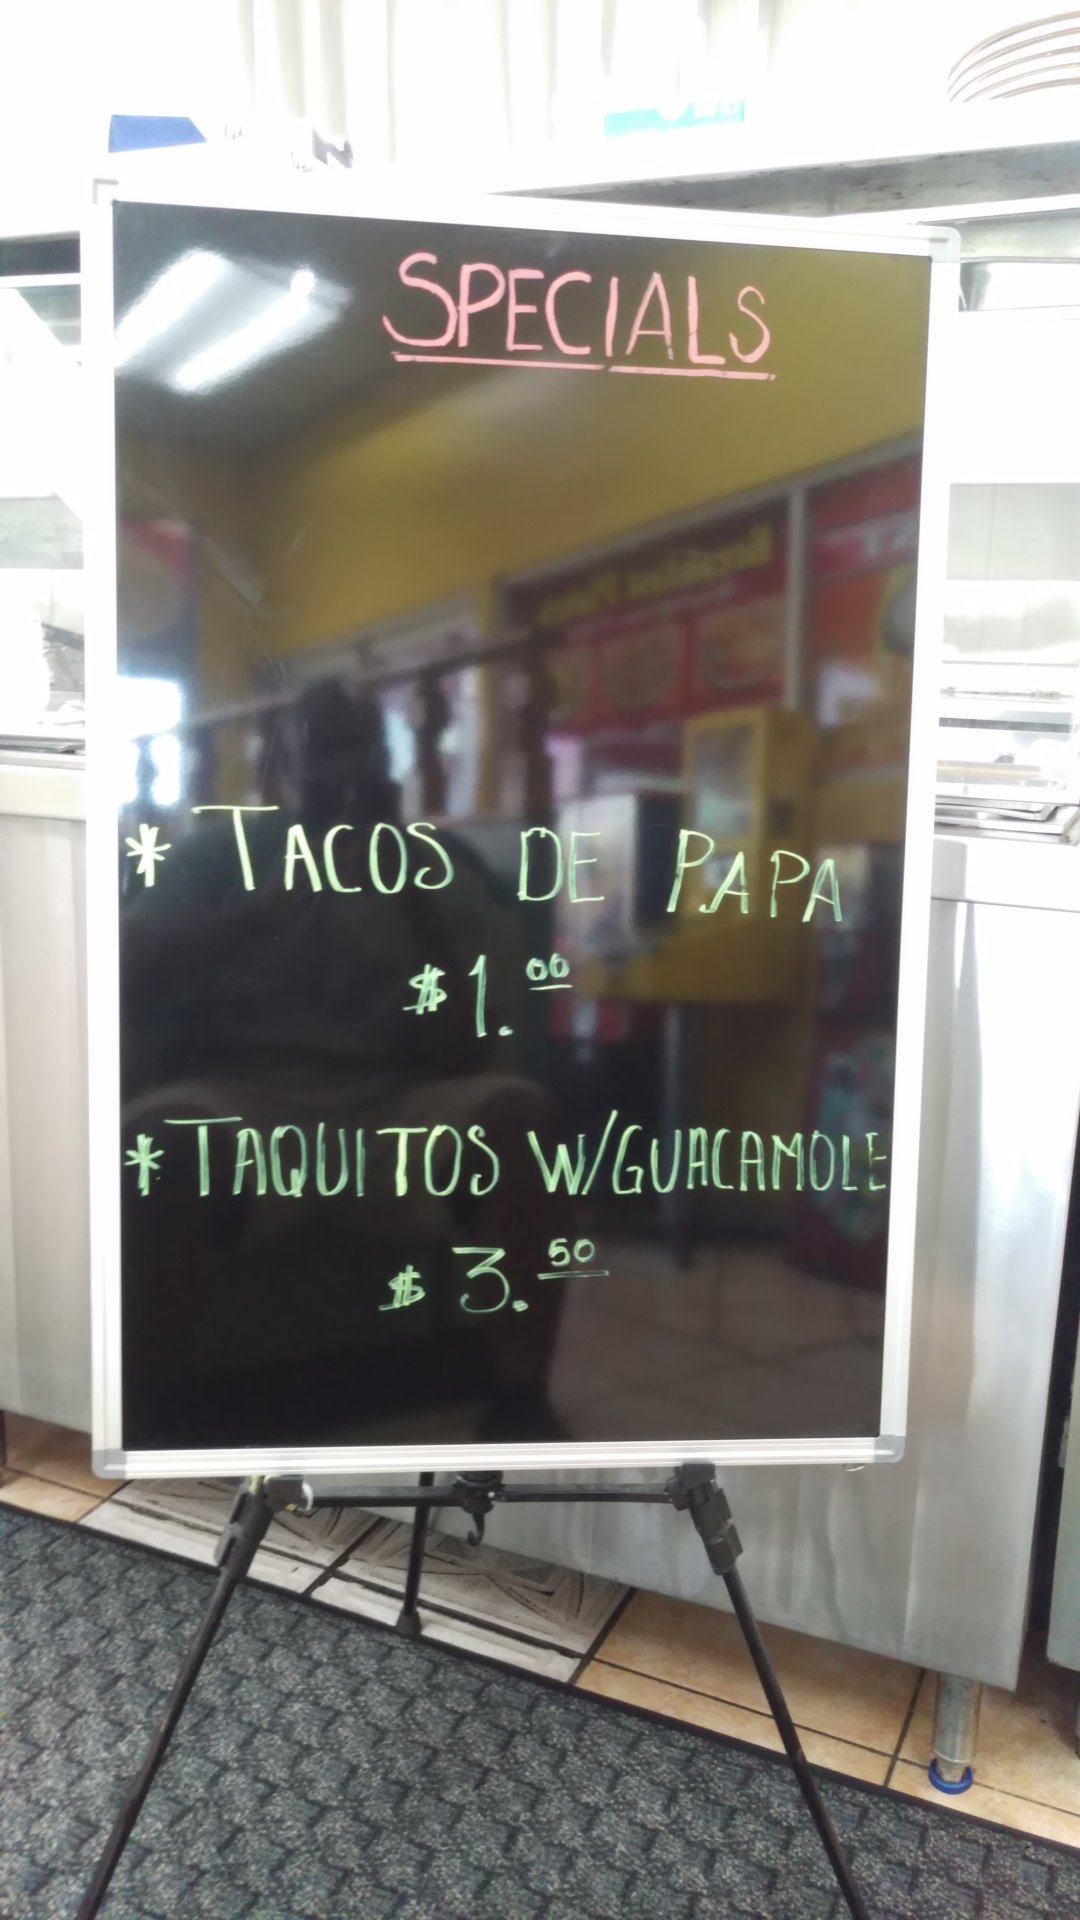 SPECIALS
* TACOS DE PAPA
$1.00
* TAQUITOS W/GUACAMOLE
$3.50